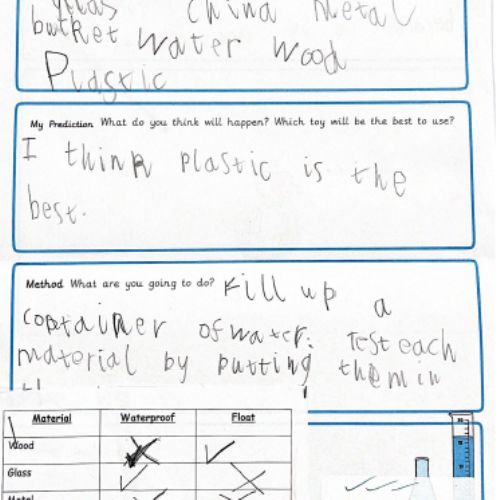 glas China metal
bucket water wood
Plastic
My Prediction What do you think will happen? Which toy will be the best to use?
I think plastic is the
best.
Method What are you going to do? Fill up a
container of water. Test each
material by putting them in
Material Waterproof Float
Wood
Glass
Metal